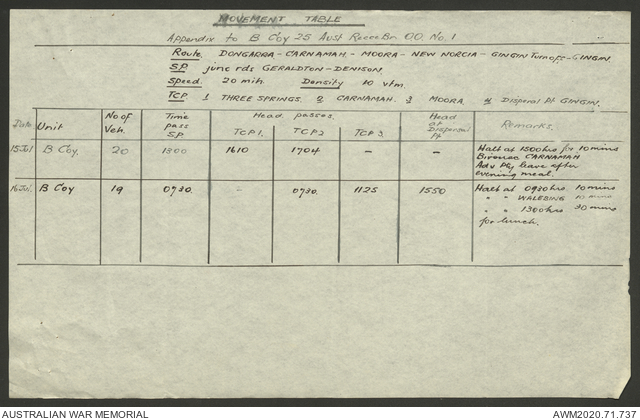 MOVEMENT TABLE
Appendix to B Coy 25 Aust Recce Bn. O.O. No. 1
Route. DONGARRA - CARNAMAH - MOORA - NEW NORCIA - GINGIN Turnoff - GINGIN.
S.P. junc rds GERALDTON - DENISON.
Speed. 20 mih. Density 10 vtm.
TCP. 1 THREE SPRINGS. 2 CARNAMAH. 3 MOORA. 4 Dispersal Pt GINGIN.
Date Unit No of Veh. Time pass S.P. Head passes. TCP 1. TCP 2 TCP 3. Head at Dispersal Pt Remarks.
15 Jul B Coy. 20 1300 1610 1704 - - Halt at 1500 hrs for 10 mins
Bivouac CARNAMAH
Adv Pty leave after
evening meal.
16 Jul. B Coy 19 0730. - 0730. 1125 1550 Halt at 0930 hrs 10 mins
" " WALEBING 10 mins
" " 1300 hrs 30 mins
for lunch.
AUSTRALIAN WAR MEMORIAL
AWM2020.71.737